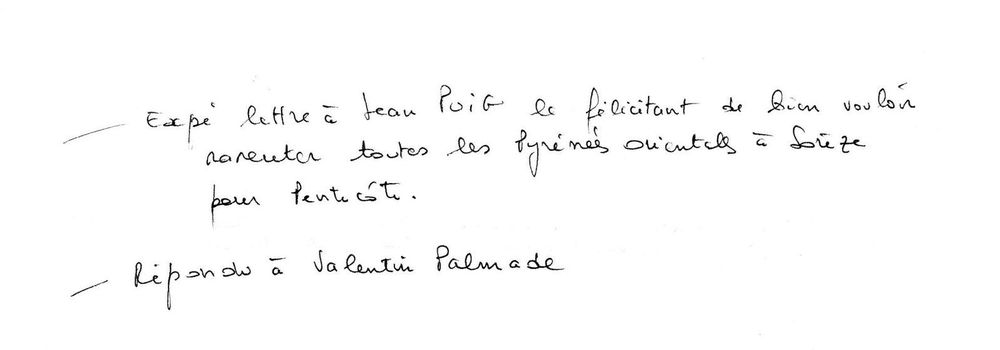 — Expé lettre à Jean PUIG le félicitant de bien vouloir
rameuter toutes les Pyrénées orientales à Sorèze
pour Pentecôte.
— Répondu à Valentin Palmade